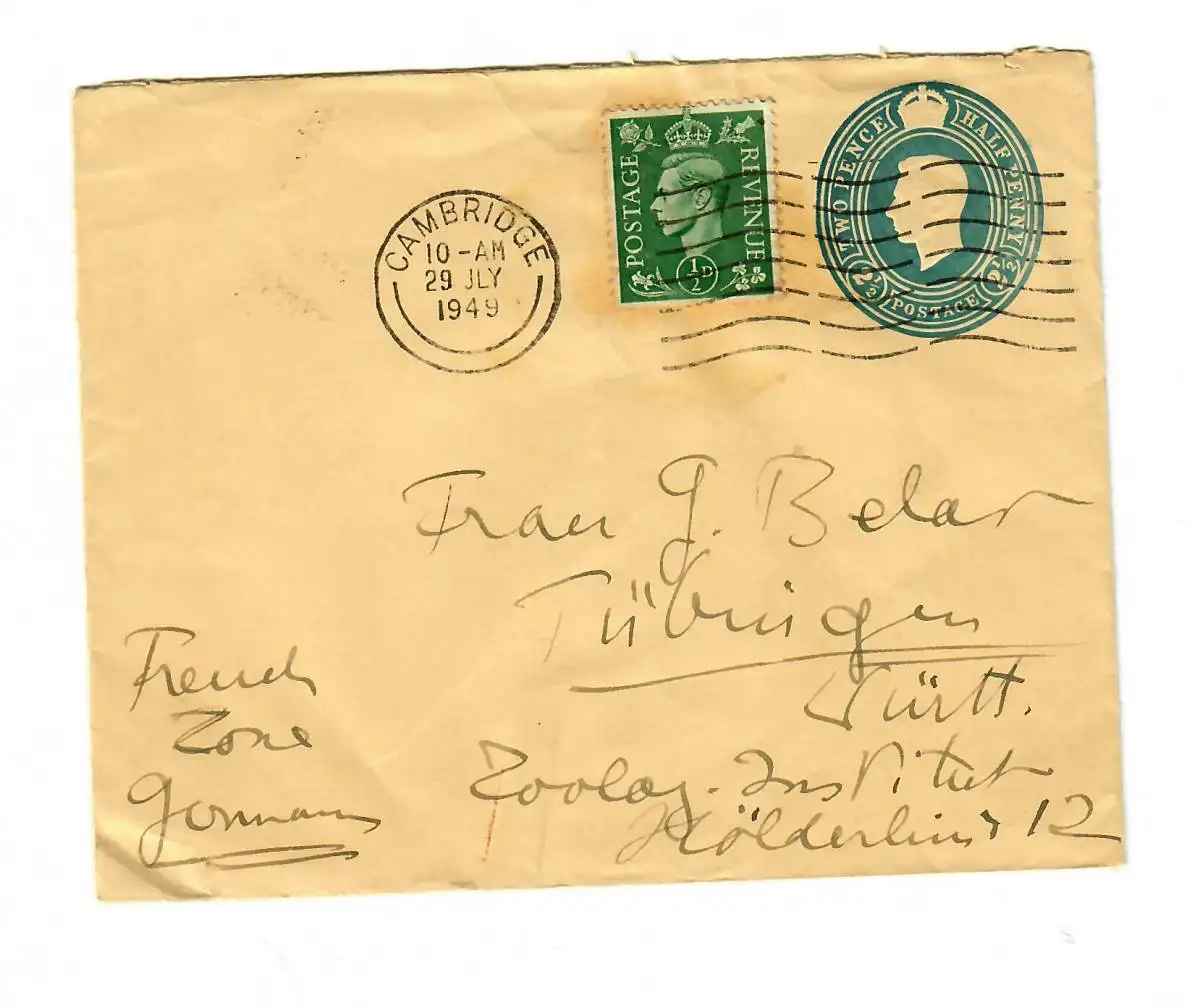 CAMBRIDGE
10-AM
29 JLY
1949
POSTAGE REVENUE
½D
TWO PENCE HALF PENNY
2½ POSTAGE 2½
Frau G. Belar
Tübingen
Württ.
Zoolog. Institut
Hölderlinstr 12
French
Zone
Germany